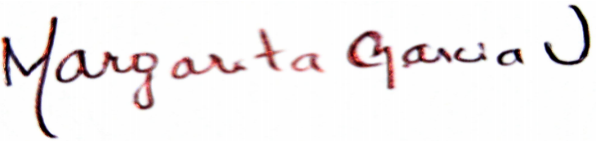 Margarita Garcia J